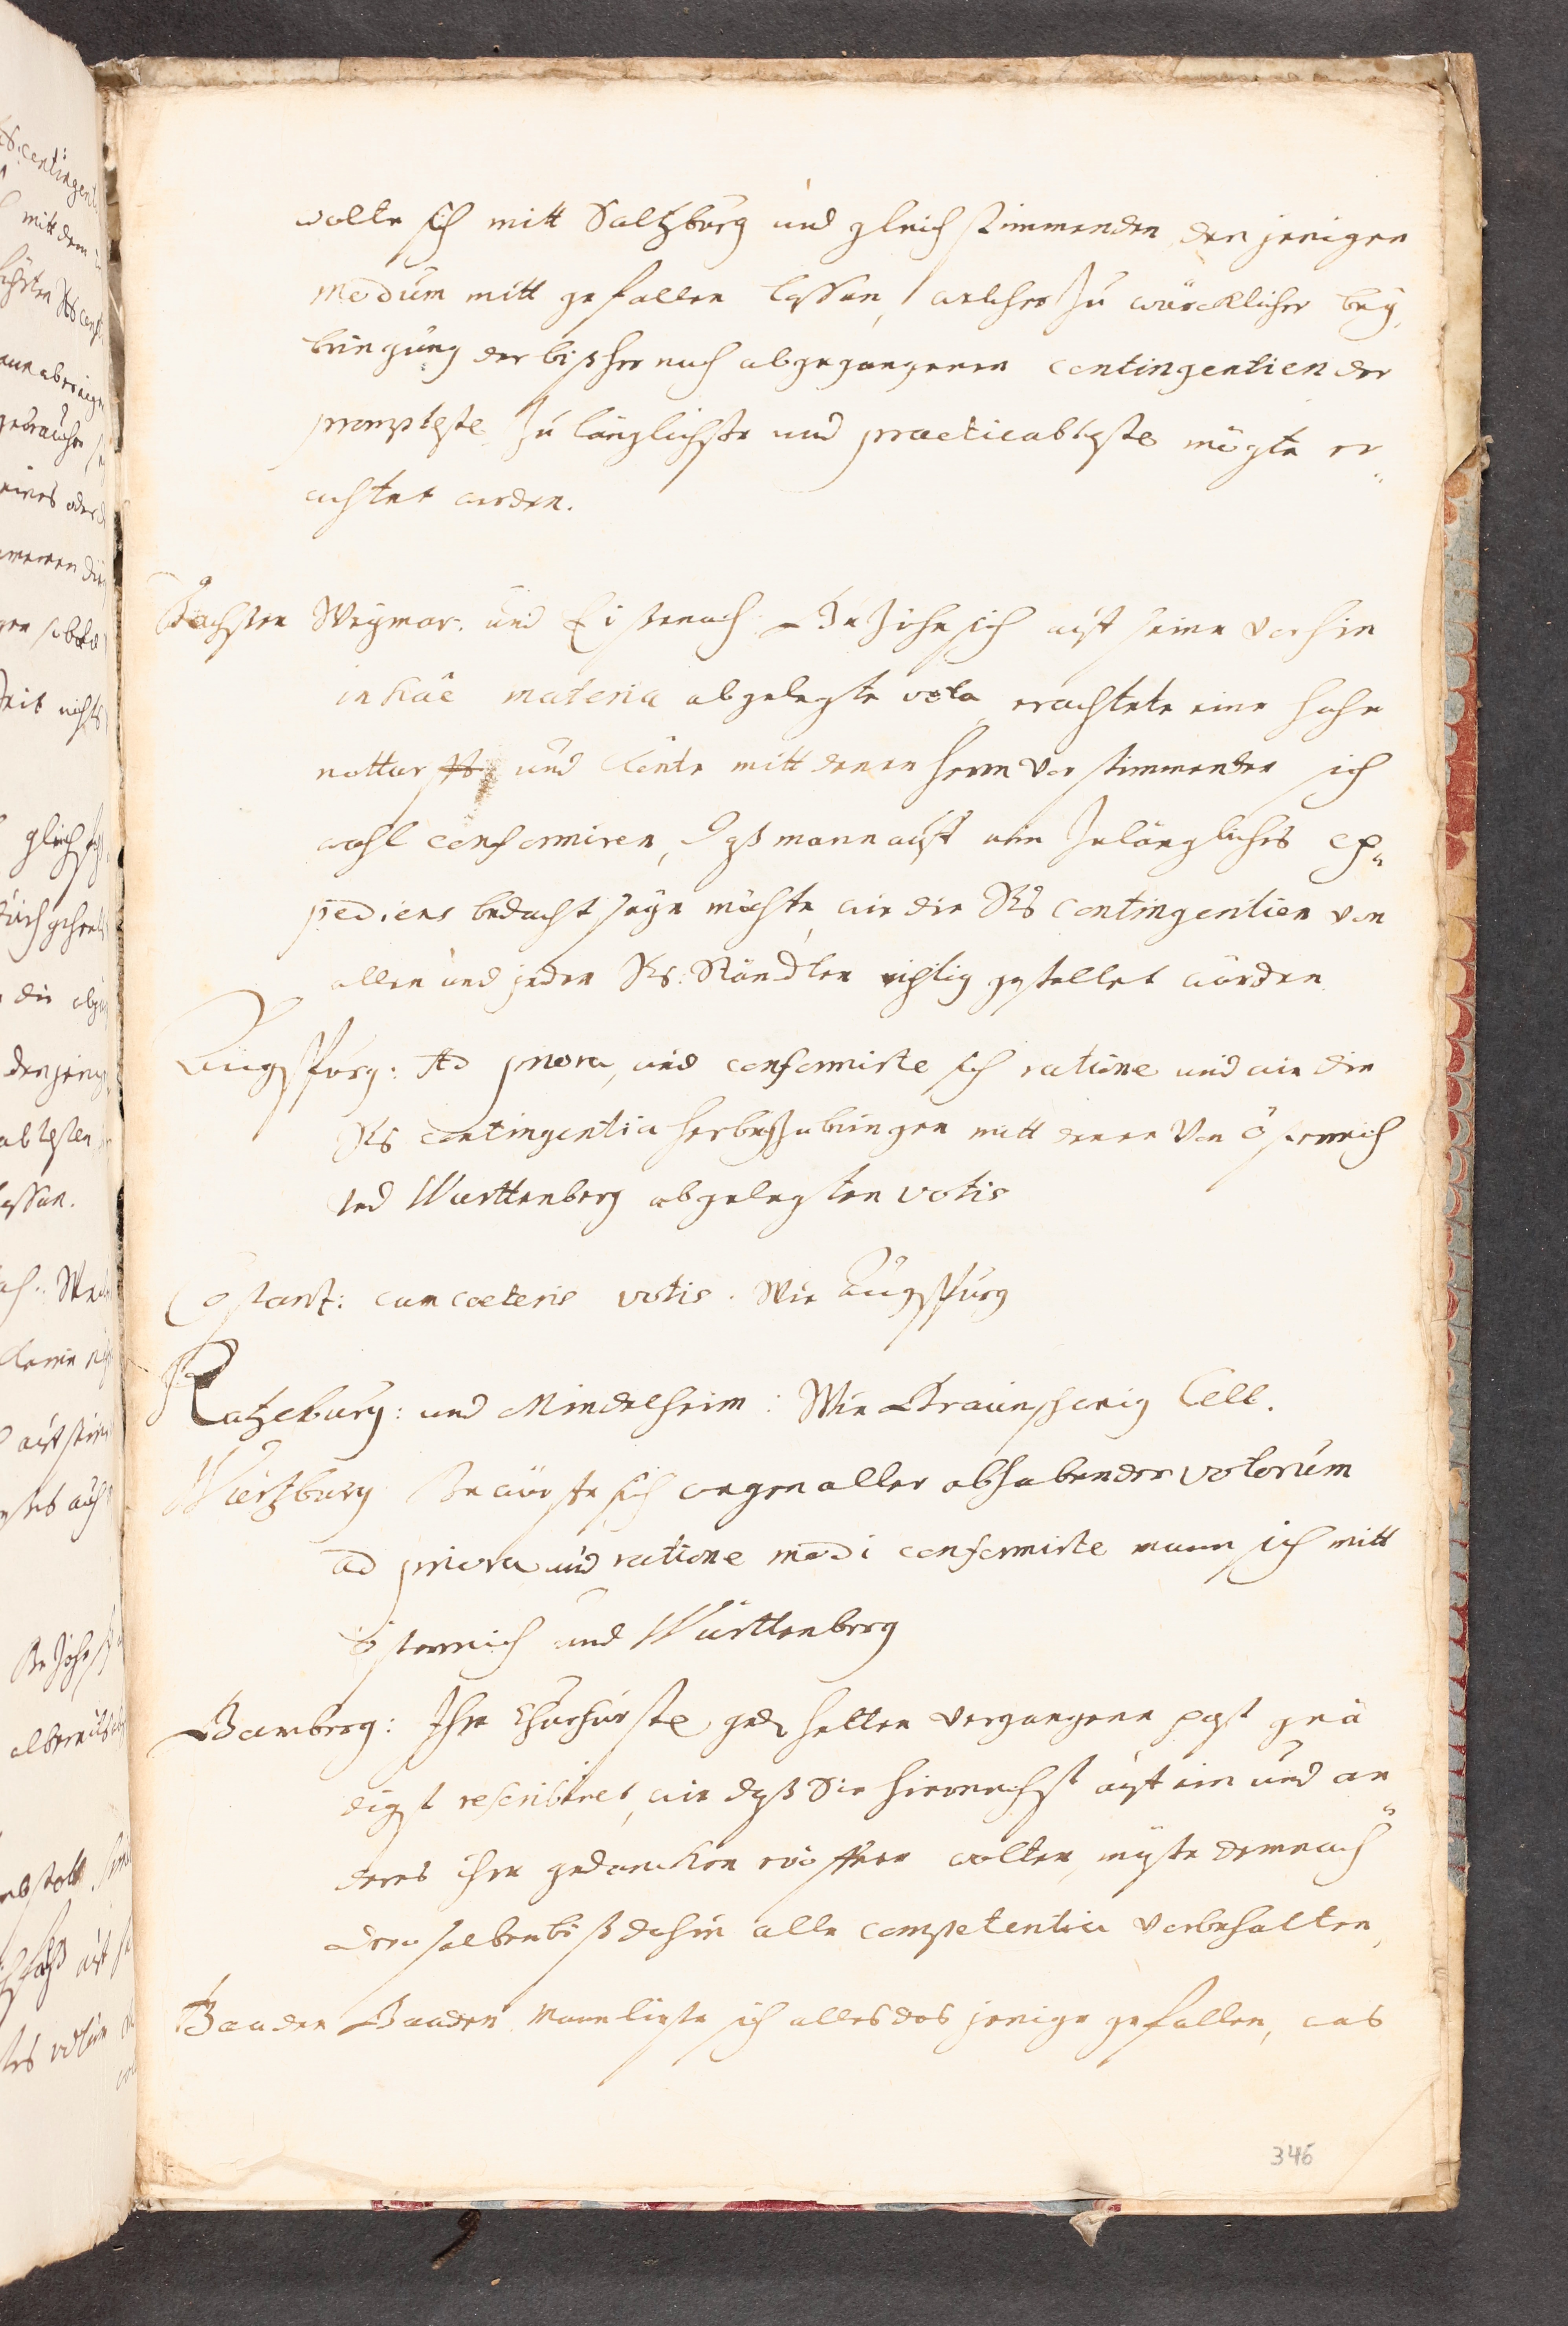 wolte sich mitt Saltzburg und gleich stimmenden den jenigen
modum mitt gefallen lassen, welcher zu würcklicher bey
bringung der bißher noch abgegangenen contingentien der
prompteste, zu länglichste und practicableste mögte er„
achtet werden.
Sachsen Weymar. und Eisenach. Bezihe sich auf seine vorhin
in hac materia abgelegte vota, erachtete eine hohe
notturfft und könte mitt denen herrn Vorstimmenden sich
wohl conformiren, daß mann auff ein zulängliches ex„
pediens bedacht seyn möchte, wie die Rs contingentien von
allen und jeden Rs: Ständten richtig gestellet würden
Augspurg: Ad priora, und conformirte sich ratione und wie die
Rs contingentia herbeyzubringen mitt denen Von Östereich
und Württenberg abgelegten votis
Costantz: cum coeteris votis. Wie Augspurg
Ratzeburg: und Mindelheim: Wie Braunschweig Cell.
Würtzburg Beruffte sich wegen aller obhabender votorum
ad priora und ratione modi conformirte mann sich mitt
östereich und Württenberg
Bamberg: Ihre Churfürstl gnd. hetten vergangene post gnä
digst rescribiret, wie daß Sie hiernechst auf ein und an„
deres ihre gedancken eröffnen wolten, müste demnach
deroselben biß dahin alle competentia vorbehalten,
Baaden Baaden Mann ließe sich alles das jenige gefallen, was
346